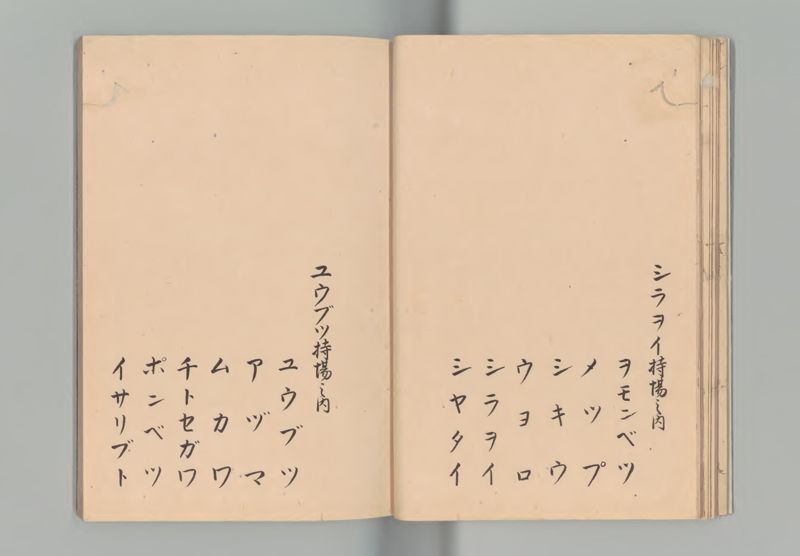 シラヲイ持場之内
ヲモンベツ
メツプ
シキウ
ウヨロ
シラヲイ
シヤタイ
ユウブツ持場之内
ユウブツ
アヅマ
ムカワ
チトセガワ
ポンベツ
イサリブト